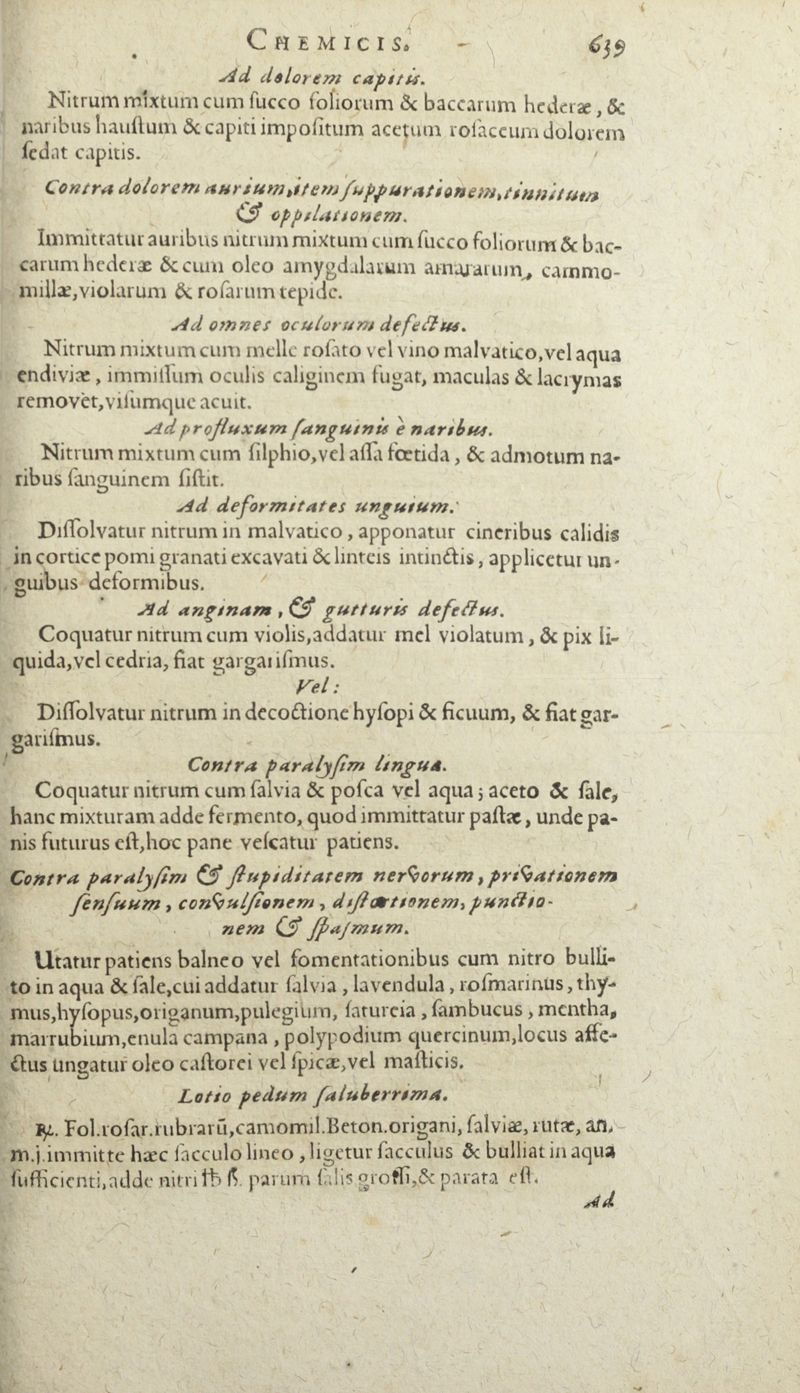 CHEMICIS. 639
Ad dolorem capitis.
Nitrum mixtum cum ſucco foliorum & baccarum hederæ, &
naribus hauſtum & capiti impoſitum acetum roſaceum dolorem
ſedat capitis.
Contra dolorem aurium, item ſuppurationem, tinnitum
& oppilationem.
Immittatur auribus nitrum mixtum cum ſucco foliorum & bac-
carum hederæ & cum oleo amygdalarum amararum, cammo-
millæ, violarum & roſarum tepide.
Ad omnes oculorum defectus.
Nitrum mixtum cum melle roſato vel vino malvatico, vel aqua
endiviæ, immiſſum oculis caliginem fugat, maculas & lacrymas
removet, viſumque acuit.
Ad profluxum ſanguinis e naribus.
Nitrum mixtum cum ſilphio, vel aſſa fœtida, & admotum na-
ribus ſanguinem ſiſtit.
Ad deformitates unguium.
Diſſolvatur nitrum in malvatico, apponatur cineribus calidis
in cortice pomi granati excavati & linteis intinctis, applicetur un-
guibus deformibus.
Ad anginam, & gutturis defectus.
Coquatur nitrum cum violis, addatur mel violatum, & pix li-
quida, vel cedria, fiat gargariſmus.
Vel:
Diſſolvatur nitrum in decoctione hyſopi & ficuum, & fiat gar-
gariſmus.
Contra paralyſim linguæ.
Coquatur nitrum cum ſalvia & poſca vel aqua; aceto & ſale,
hanc mixturam adde fermento, quod immittatur paſtæ, unde pa-
nis futurus eſt, hoc pane veſcatur patiens.
Contra paralyſim & ſtupiditatem nervorum, privationem
ſenſuum, convulſionem, diſtortionem, punctio-
nem & ſpaſmum.
Utatur patiens balneo vel fomentationibus cum nitro bulli-
to in aqua & ſale, cui addatur ſalvia, lavendula, roſmarinus, thy-
mus, hyſopus, origanum, pulegium, ſatureia, ſambucus, mentha,
marrubium, enula campana, polypodium quercinum, locus affe-
ctus ungatur oleo caſtorei vel ſpicæ, vel maſticis.
Lotio pedum ſaluberrima.
℞. Fol. roſar. rubrarū, camomil. Beton. origani, ſalviæ, rutæ, an.
m. j. immitte hæc ſacculo lineo, ligetur ſacculus & bulliat in aqua
ſufficienti, adde nitri ℔ ß. parum ſalis groſſi, & parata eſt.
Ad